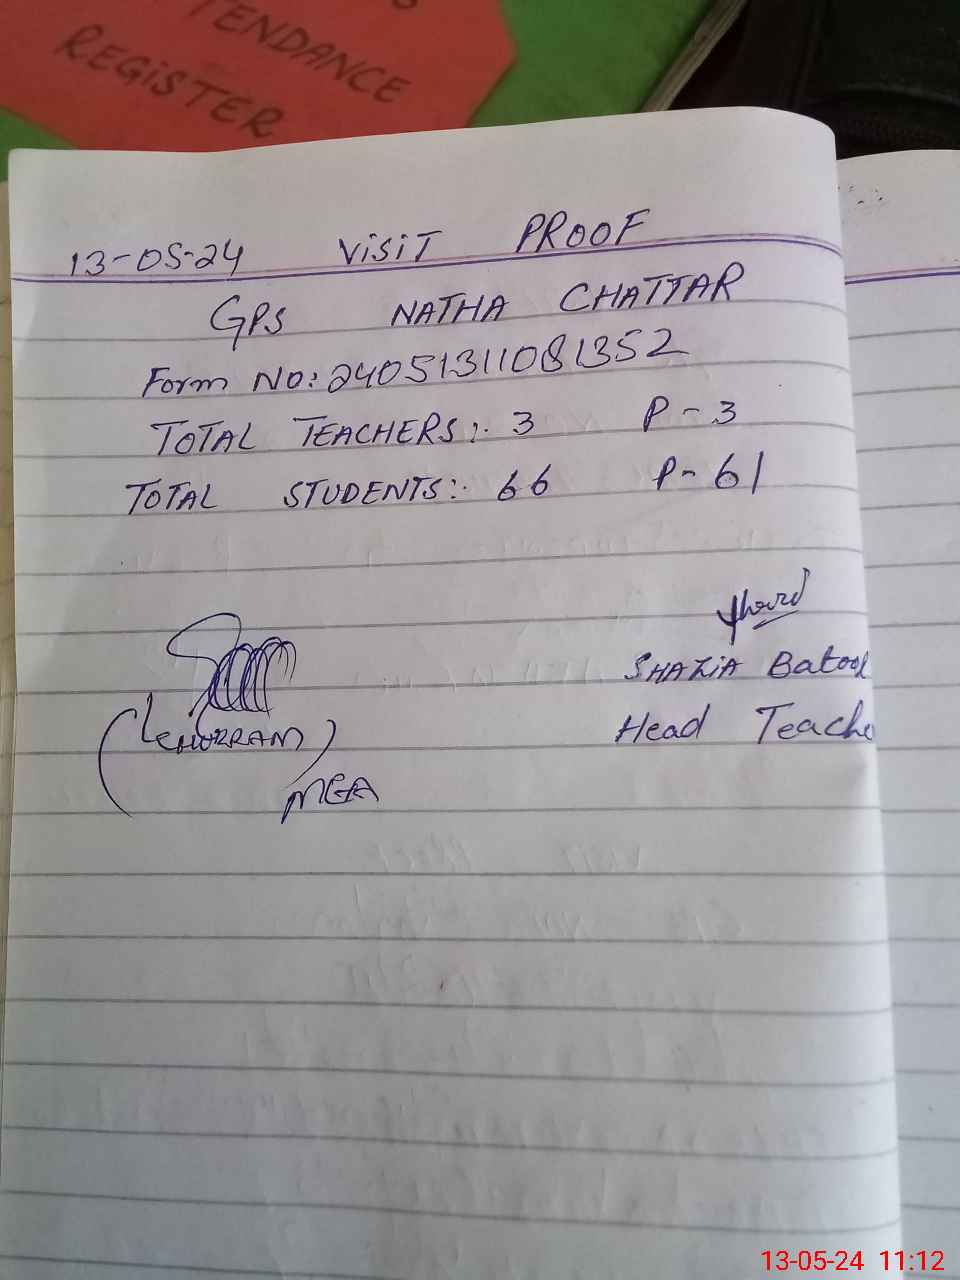 TENDANCE
REGiSTER
13-05-24 ViSiT PROOF
GPS NATHA CHATTAR
Form No: 24051311081352
TOTAL TEACHERS:- 3 P-3
TOTAL STUDENTS:- 66 P-61
SHAZiA Batool
(KHURRAM) Head Teache
MEA
13-05-24 11:12